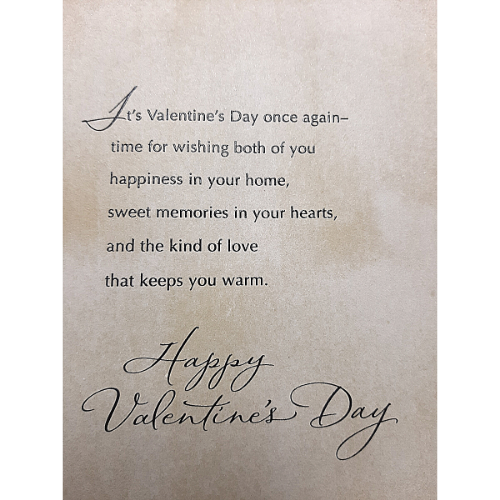 It's Valentine's Day once again–
time for wishing both of you
happiness in your home,
sweet memories in your hearts,
and the kind of love
that keeps you warm.
Happy
Valentine's Day